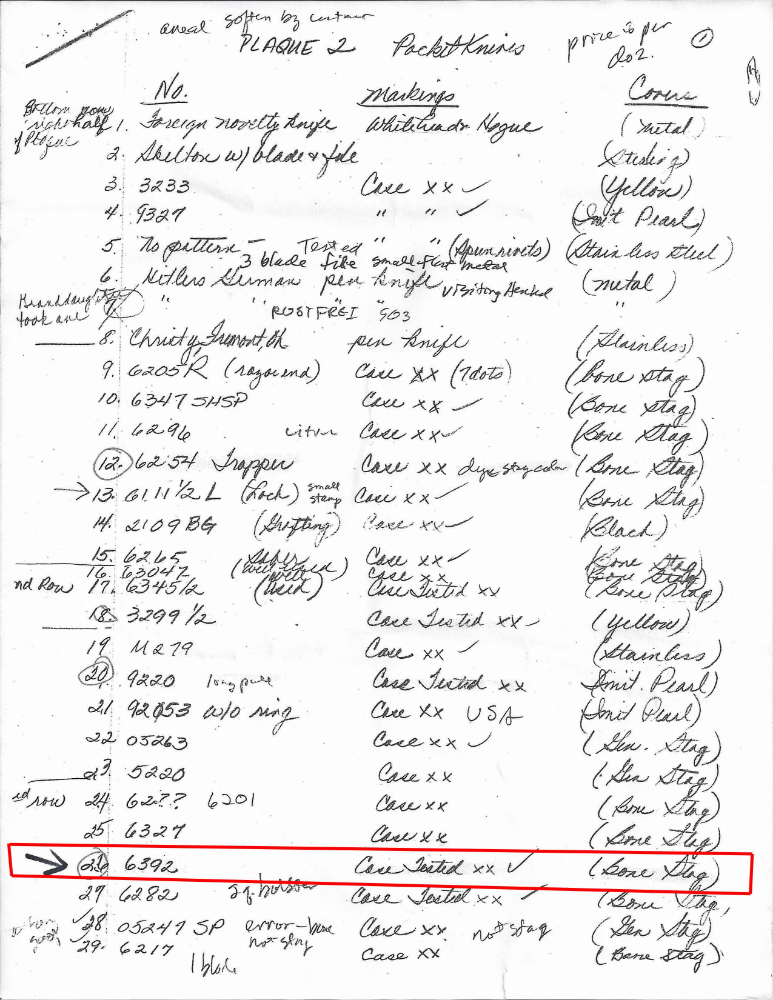 aneal soften by
PLAQUE 2 Pocket Knives price is per doz. 1
No. Markings Covers
Bottom row right half of Plaque
1. Foreign novelty knife Whitehead & Hogue (metal)
2. Skelton w/ blade & file (Sterling)
3. 3233 Case XX ✓ (Yellow)
4. 9327 " " ✓ (Imit Pearl)
5. No pattern - Tested " " (spun rivets) (Stainless Steel)
3 blade file small flat metal
6. Hitlers German pen knife (metal)
Granddaughter took one
7. " " " "
ROSTFREI 903
8. Christy, Fremont, Oh pen knife (Stainless)
9. 6205 R (razor end) Case XX (7 dots) (bone stag)
10. 6347 SHSP Case XX ✓ (Bone Stag)
11. 6296 Case XX ✓ (Bone Stag)
12. 6254 Trapper Case XX (Bone Stag)
→ 13. 6111 1/2 L (Lock) small stamp Case XX ✓ (Bone Stag)
14. 2109 BG (Grafting) Case XX ✓ (Black)
15. 6265 Saber Case XX ✓ (Bone Stag)
16. 63047 (well used) Case XX (Bone Stag)
nd Row 17. 6345 1/2 (used) Case Tested XX (Bone Stag)
18. 3299 1/2 Case Tested XX ✓ (Yellow)
19 M279 Case XX ✓ (Stainless)
20. 9220 long pull Case Tested XX (Imit. Pearl)
21 92053 w/o ring Case XX USA (Imit Pearl)
22 05263 Case XX ✓ (Gen. Stag)
23. 5220 Case XX (Gen Stag)
rd row 24. 62?? 6201 Case XX (Bone Stag)
25 6327 Case XX (Bone Stag)
→ 26 6392 Case Tested XX ✓ (Bone Stag)
27 6282 Case Tested XX ✓ (Bone Stag,
✓ 28 05247 SP error-bone not stag Case XX not stag (Gen Stag)
✓ 29. 6217 Case XX (Bone Stag)
1 blade